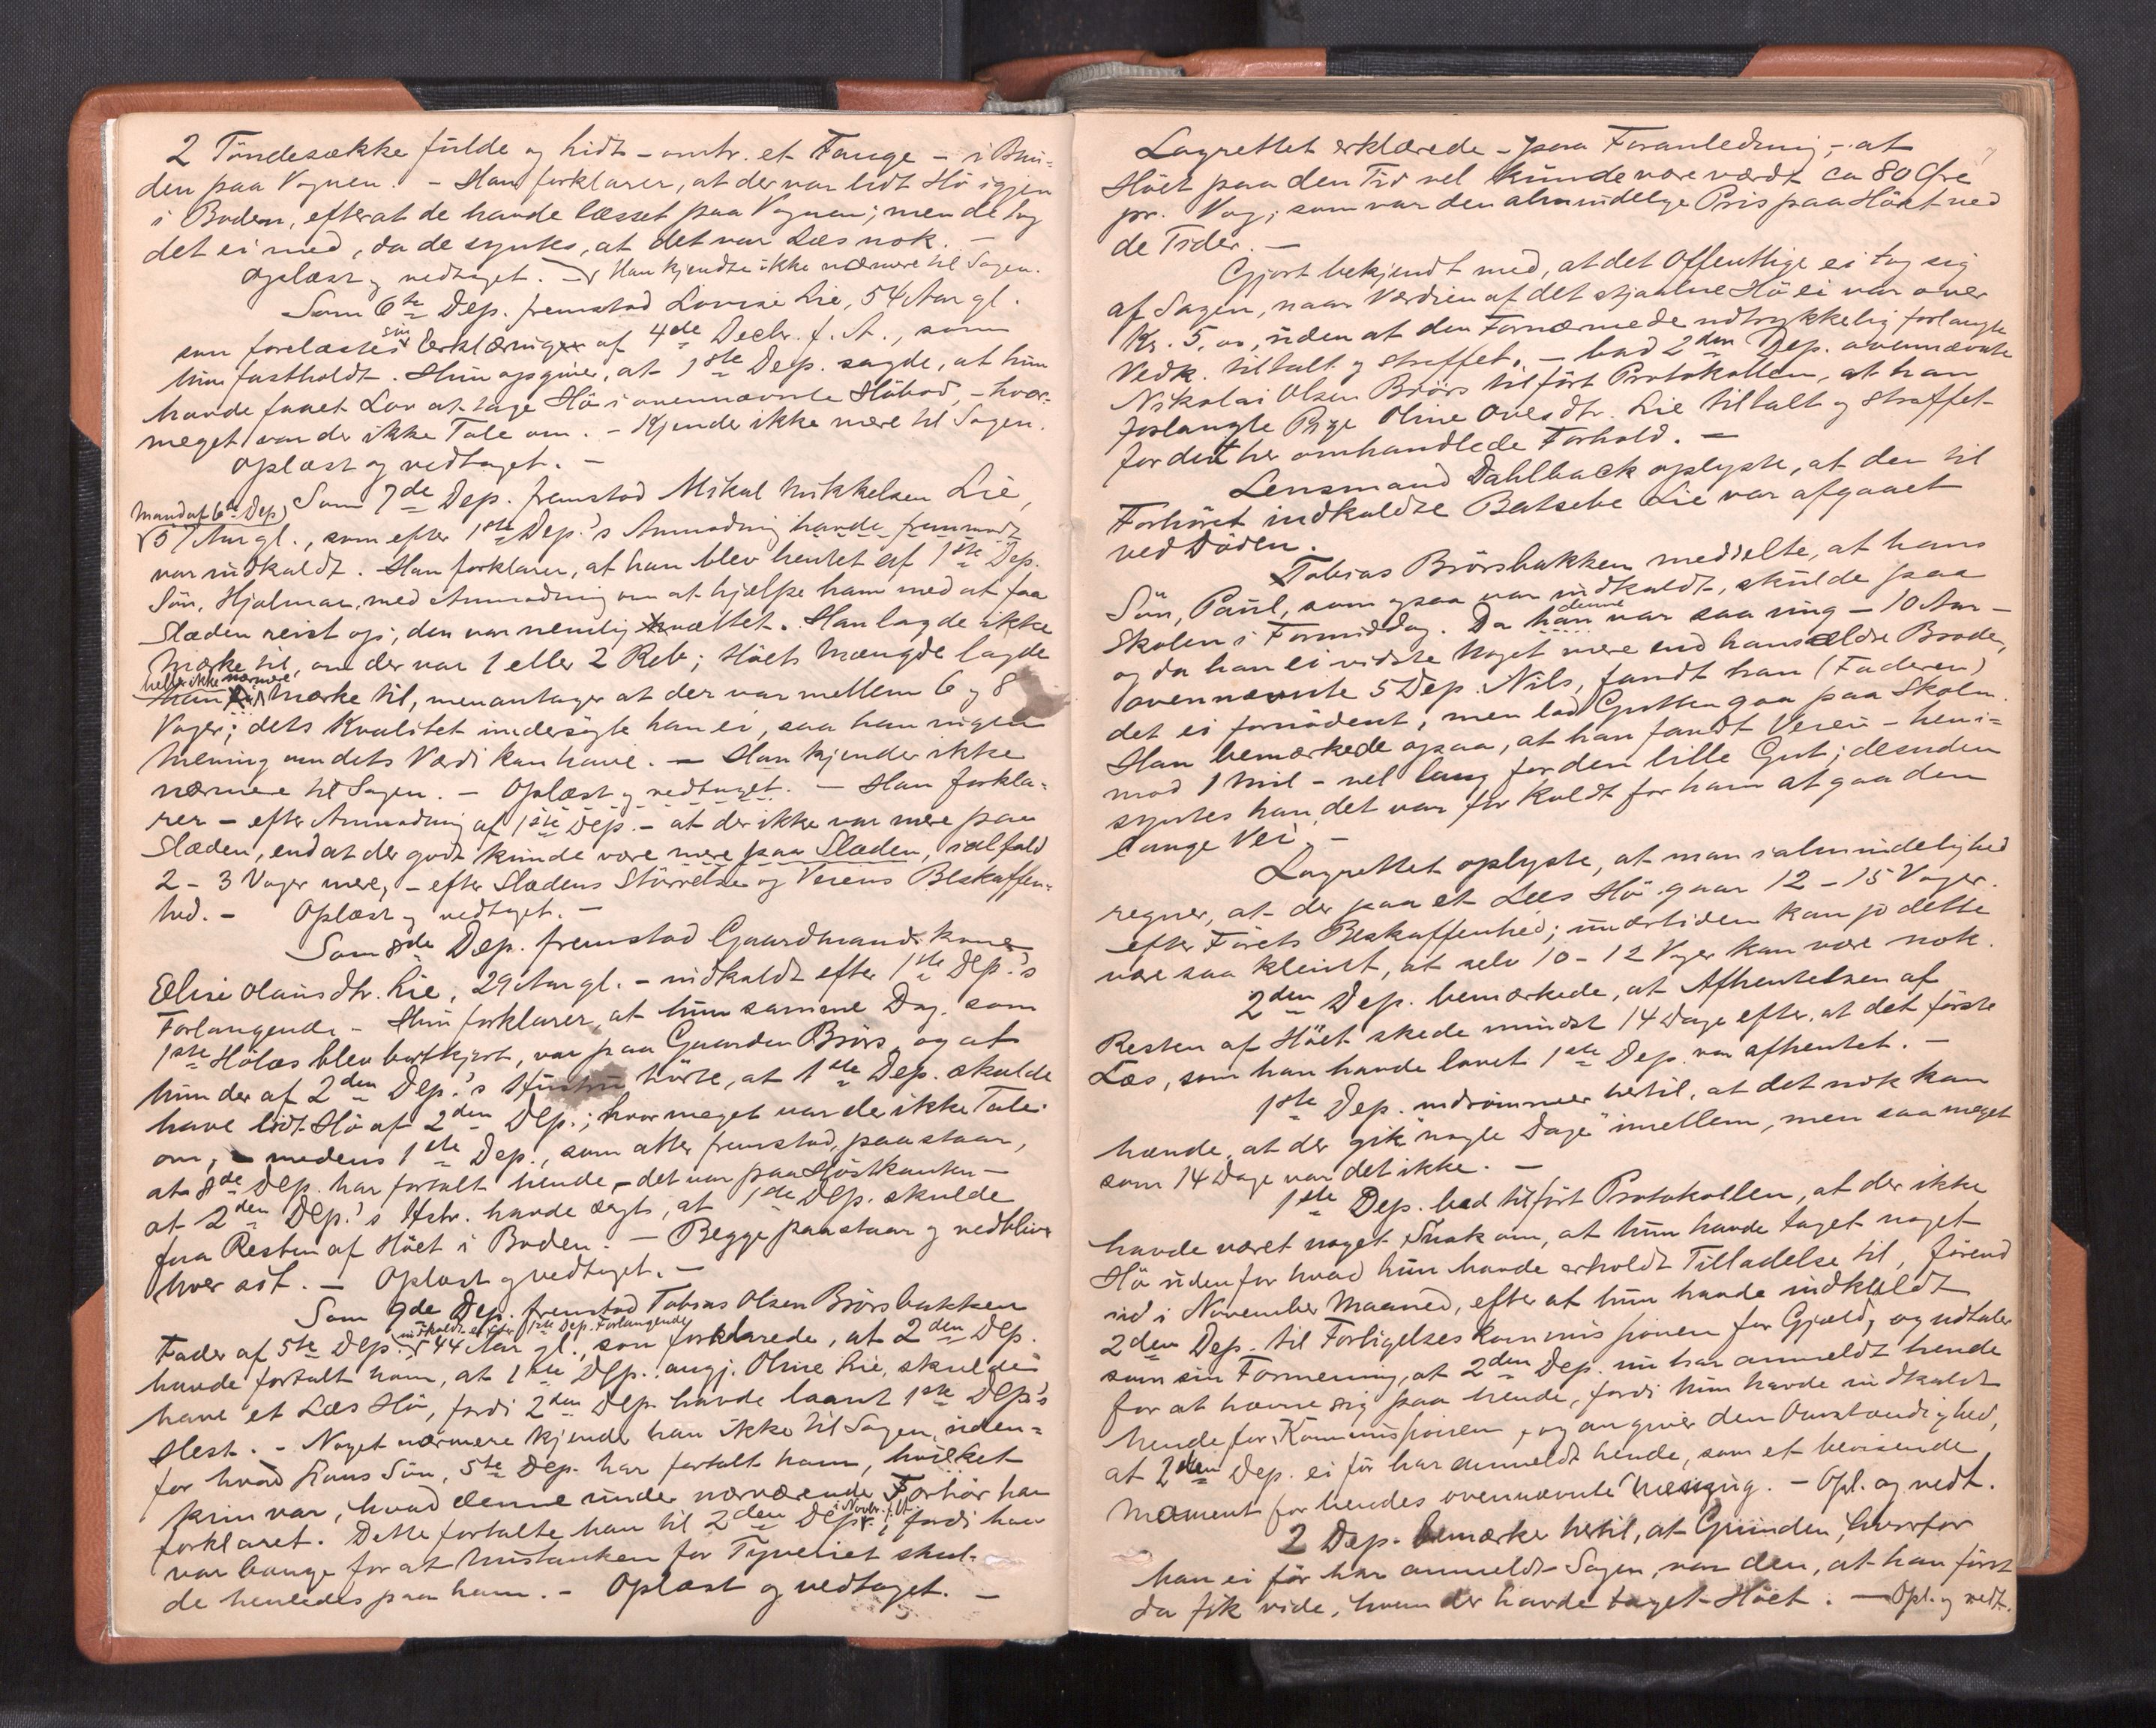 2 Töndesække fulde og lidt - omtr. et Fange - i Bun-
den paa Vognen. - Han forklarer, at der var lidt Hö igjen
i Boden, efterat de havde læsset paa Vognen; men de tog
det ei med, da de syntes, at det var Læs nok. -
Oplæst og vedtaget. - Han kjendte ikke nærmere til Sagen.
Som 6te Dep. fremstod Lovise Lie, 54 Aar gl.
som forelæstes sin Erklæringen af 4de Decbr. f. A., som
hun fastholdt. Hun opgiver, at 1ste Dep. sagde, at hun
havde faaet Lov at tage Hö i ovennævnte Höbod, - hvor-
meget var der ikke Tale om. - Kjender ikke mere til Sagen.
Oplæst og vedtaget. -
Som 7de Dep. fremstod Mikal Mikkelsen Lie,
Mand af 6te Dep,
57 Aar gl., som efter 1ste Dep.'s Anmodning havde fremmødt
var indkaldt. Han forklarer, at han blev hentet af 1ste Dep.
Sön, Hjalmar, med Anmodning om at hjelpe ham med at faa
Slæden reist op; den var nemlig hvæltet. Han lagde ikke
Mærke til, om der var 1 eller 2 Reb; Höets Mængde lagde
heller ikke nærmere
han Mærke til, men antager at der var mellem 6 og 8
Voger; dets Kvalitet undersögte han ei, saa han ingen
Mening om dets Værdi kan have. - Han kjender ikke
nærmere til Sagen. - Oplæst og vedtaget. - Han forkla-
rer - efter Anmodning af 1ste Dep. - at der ikke var mere paa
Slæden, end at der godt kunde være mere paa Slæden, ialfald
2 - 3 Voger mere, - efter Slædens Störrelse og Veiens Beskaffen-
hed. - Oplæst og vedtaget. -
Som 8de Dep. fremstod Gaardmandskone
Elise Olausdtr. Lie, 29 Aar gl. - indkaldt efter 1ste Dep.'s
Forlangende - Hun forklarer, at hun samme Dag, som
1ste Hölæs blev bortkjört, var paa Gaarden Brörs og at
hun der af 2den Dep.'s Hustru hörte, at 1ste Dep. skulde
have lidt Hö af 2den Dep.; hvormeget var der ikke Tale
om, - medens 1ste Dep., som atter fremstod, paastaar,
at 8de Dep. har fortalt hende, - det var paa Höstkanten -
at 2den Dep.'s Hstr. havde sagt, at 1ste Dep. skulde
faa Resten af Höet i Boden. - Begge paastaar og vedbliver
hver sit. - Oplæst og vedtaget. -
Som 9de Dep. fremstod Tobias Olsen Brörsbakken
indkaldt efter 1ste Dep. Forlangende
Fader af 5te Dep. 44 Aar gl., som forklarede, at 2den Dep.
havde fortalt ham, at 1ste Dep. angj. Oline Lie, skulde
have et Læs Hö, fordi 2den Dep. havde laant 1ste Dep's
Hest. - Noget nærmere kjender han ikke til Sagen, uden-
for hvad hans Sön, 5te Dep. har fortalt ham, hvilket
kun var, hvad denne under nærværende Forhör har
i Novbr. f. A.
forklaret. Dette fortalte han til 2den Dep., fordi han
var bange for at Mistanken for Tyveriet skul-
de henledes paa ham. - Oplæst og vedtaget. -
Lagrettet erklærede - paa Foranledning, - at
Höet paa den Tid vel kunde være værdt ca 80 Öre
pr. Vog; som var den almindelige Pris paa Höet ved
de Tider. -
Gjort bekjendt med, at det Offentlige ei tog sig
af Sagen, naar Værdien af det stjaalne Hö ei var over
Kr. 5,00, uden at den Fornærmede udtrykkelig forlangte
Vedk. tiltalt og straffet, - bad 2den Dep. ovennævnte
Nikolai Olsen Brörs tilfört Protokollen, at han
forlangte Pige Oline Ovesdtr. Lie tiltalt og straffet
for dett her omhandlede Forhold. -
Lensmand Dahlback oplyste, at den til
Forhöret indkaldte Batseba Lie var afgaaet
ved Döden.
Tobias Brörsbakken meddelte, at hans
Sön, Paul, som ogsaa var indkaldt, skulde paa
Skolen i Formiddag. Da han denne var saa ung - 10 Aar -
og da han ei vidste noget mere end hans ældre Broder,
ovennævnte 5 Dep. Nils, fandt han (Faderen)
det ei fornödent, men lod Gutten gaa paa Skolen.
Han bemærkede ogsaa, at han fandt Veien - hen i-
mod 1 Mil - vel lang for den lille Gut; desuden
syntes han, det var for koldt for ham at gaa den
lange Vei. -
Lagrettet oplyste, at man i almindelighed
regner, at der paa et Læs Hö gaar 12 - 15 Voger.
efter Förets Beskaffenhed; undertiden kan jo dette
være saa kleint, at selv 10 - 12 Voger kan være nok.
2den Dep. bemærkede, at Afhentelsen af
Resten af Höet skede mindst 14 Dage efter, at det förste
Læs, som han havde lovet 1ste Dep. var afhentet. -
1ste Dep. indrömmer hertil, at det nok kan
hænde, at der gik "nogle Dage" imellem, men saa meget
som 14 Dage var det ikke. -
1ste Dep. bad tilfört Protokollen, at der ikke
havde været noget Snak om, at hun havde taget noget
Hö udenfor hvad hun havde erholdt Tilladelse til, förend
ud i November Maaned, efter at hun havde indkaldt
2den Dep. til Forligelseskommissionen for Gjæld, og udtaler
som sin Formening, at 2den Dep. nu har anmeldt hende
for at hævne sig paa hende, fordi hun havde indkaldt
hende for Kommissionen, og angiver den Omstændighed,
at 2den Dep. ei för har anmeldt hende, som et bevisende
Moment for hendes ovennævnte Mening. - Opl. og vedt.
2 Dep. bemærker hertil, at Grunden, hvorfor
han ei för har anmeldt Sagen, var den, at han först
da fik vide, hvem der havde taget Höet. - Opl. og vedt.